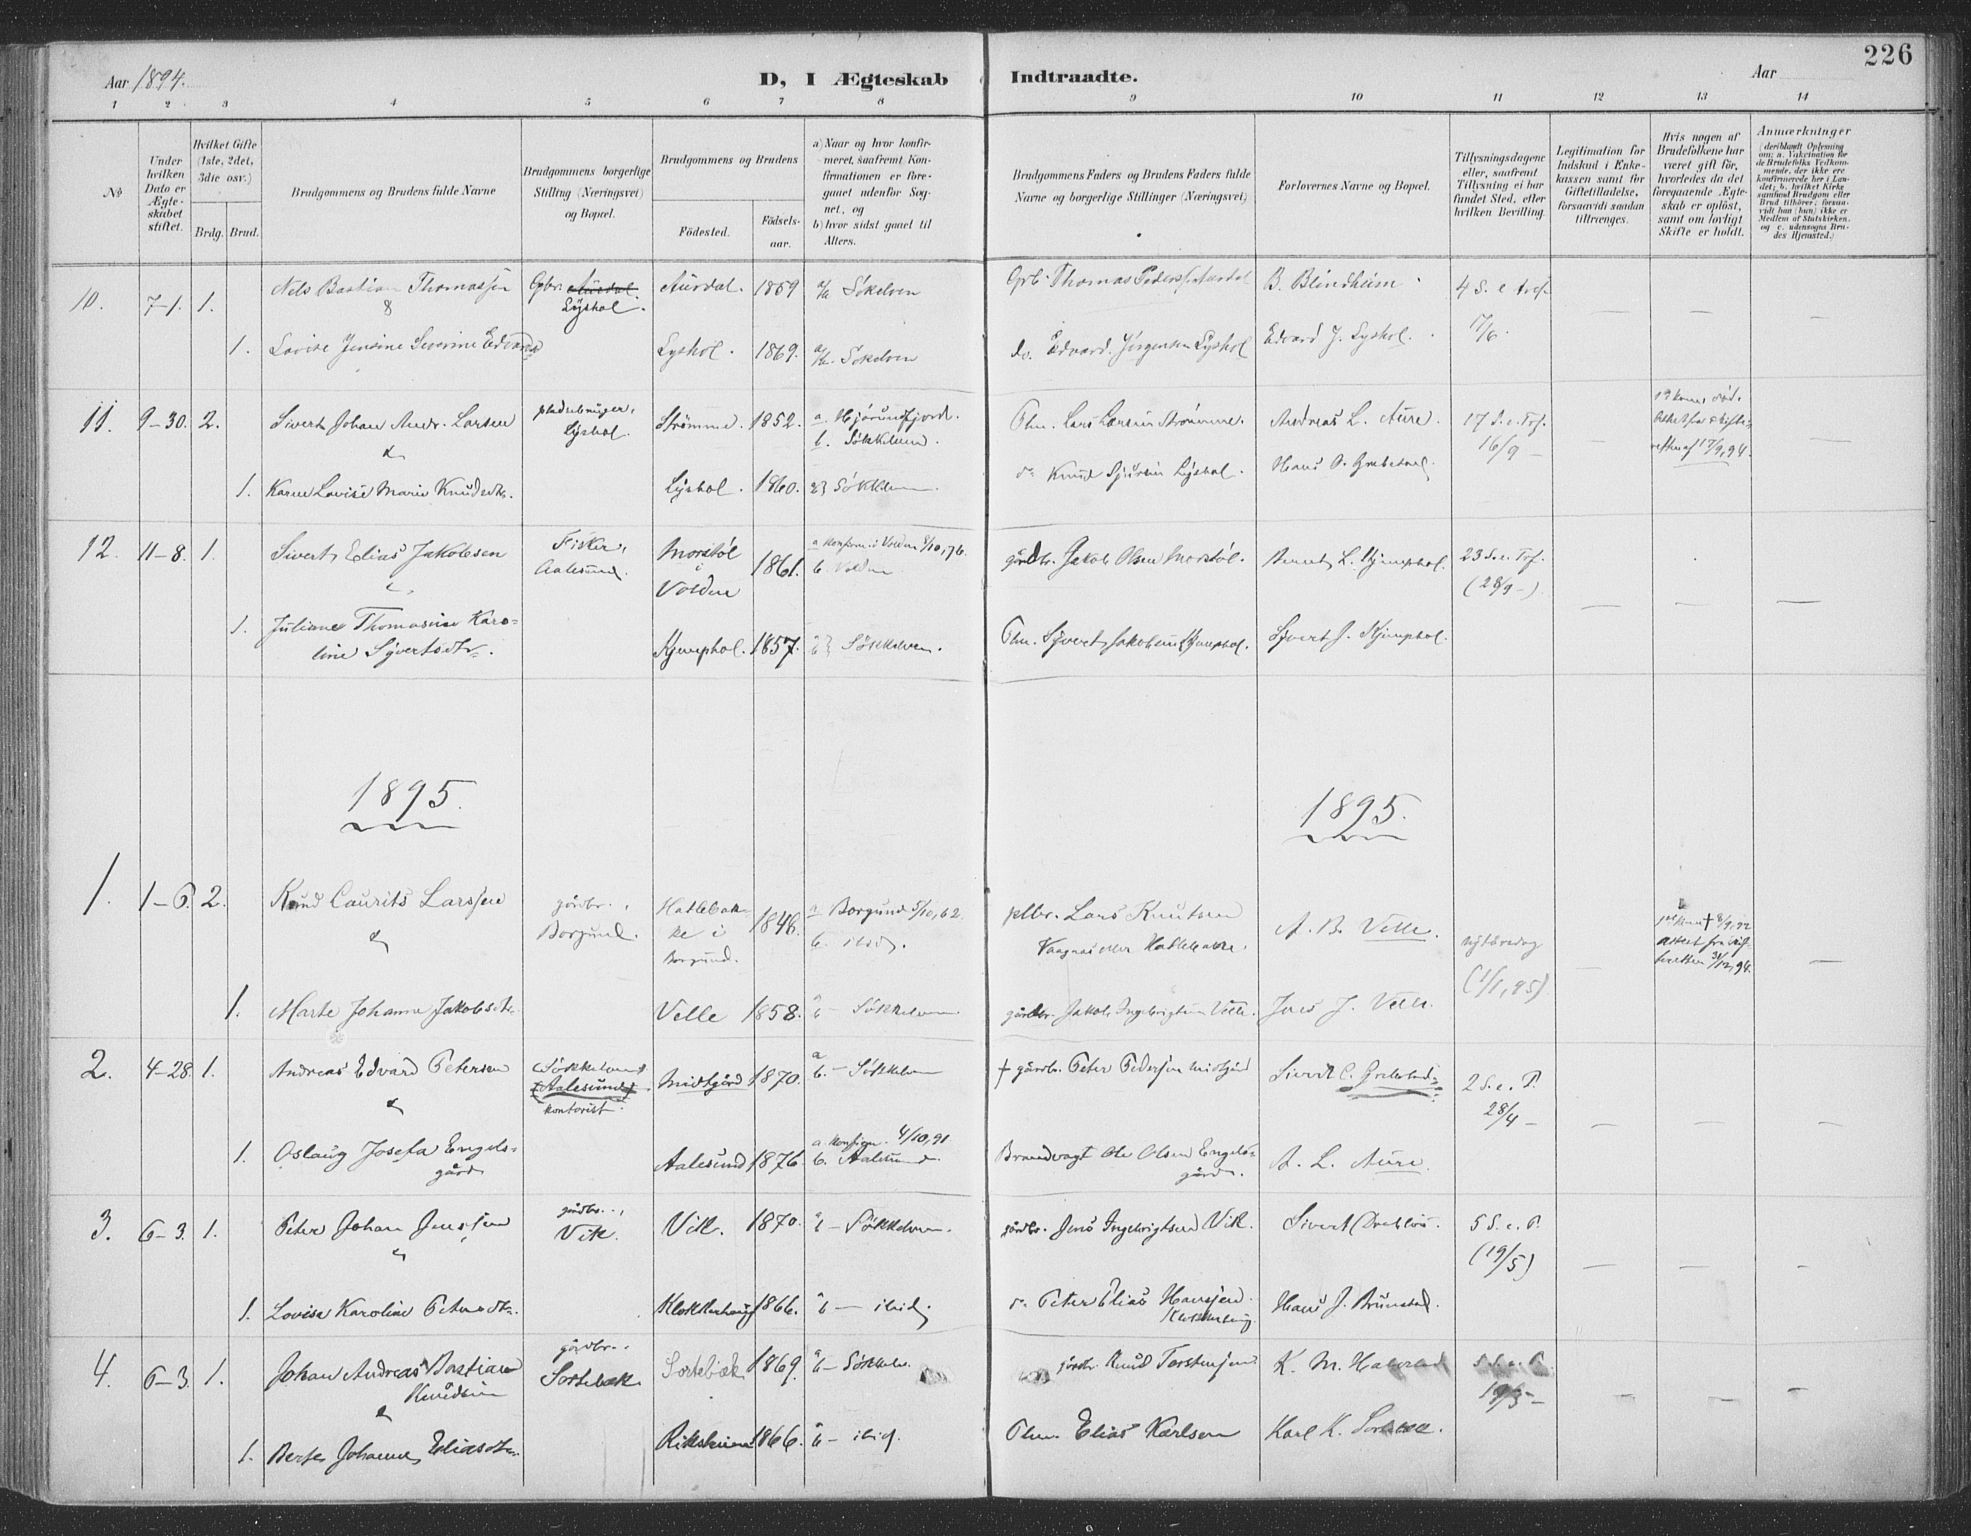 226
Aar 1894.
D, I Ægteskab Indtraadte.
Aar
1 2 3 4 5 6 7 8 9 10 11 12 13 14
№
Under hvilken Dato er Ægteskabet stiftet.
Hvilket Gifte (1ste, 2det, 3die osv.)
Brdg. Brud.
Brudgommens og Brudens fulde Navne
Brudgommens borgerlige Stilling (Næringsvei) og Bopæl.
Brudgommens og Brudens
Fødested.
Fødselsaar.
a) Naar og hvor konfirmeret, saafremt Konfirmationen er foregaaet udenfor Sognet, og
b) hvor sidst gaaet til Alters.
Brudgommens Faders og Brudens Faders fulde Navne og borgerlige Stillinger (Næringsvei)
Forlovernes Navne og Bopæl.
Tillysningsdagene eller, saafremt Tillysning ei har fundet Sted, efter hvilken Bevilling.
Legitimation for Indskud i Enkekassen samt for Giftetilladelse, forsaavidt saadan tiltrænges.
Hvis nogen af Brudefolkene har været gift før, hvorledes da det foregaaende Ægteskab er opløst, samt om lovligt Skifte er holdt.
Anmærkninger
(deriblandt Oplysning om: a. Vakcination for de Brudefolks Vedkommende, der ikke ere konfirmerede her i Landet; b. hvilket Kirkesamfund Brudgom eller Brud tilhører, forsaavidt han (hun) ikke er Medlem af Statskirken, og c. udensogns Brudes Hjemsted.)
10. 7-1. 1. Nels Bastian Thomassen Gbr. Aurdal. Lyshol. Aurdal. 1859 a/b Sökelven Grb. Thomas Peders. Aurdal B. Blindheim 4 S. e Tref. 17/6
&
1. Lovise Jensine Severine Edvards Lyshol. 1869. a/b. Sökelven do. Edvard Jörgensen Lyshol Edvard J. Lyshol.
11. 9-30. 2. Sivert Johan Andr. Larsen pladsebruger, Lyshol. Strømme. 1852. a Hjørundfjord. b. Søkkelven. Plm. Lars Larsen Strømme. Andreas L. Aure. 17 S. e. Tref. 16/9 -
1. Karen Lovise Marie Knudsdtr. Lyshol. 1860. Søkkelven. do Knud Sjursen Lyshol. Hans O. Grebstad.
12. 11-8. 1. Sivert Elias Jakobsen Fisker, Aalesund. Morstøl i Volden 1861. a konfirm. i Volden 8/10, 76. b. Volden gårdbr. Jakob Olsen Morstøl. L. Kjemphol. 23 S. e. Tref. (28/9 -)
1. Juliane Thomasine Karoline Syvertsdtr. Kjemphol. 1857. Søkkelven. Plm. Syvert Jakobsen Kjemphol. Syvert J. Kjemphol.
1895. 1895.
1. 1-6. 2. Knud Laurits Larssen gårdbr., Borgund. Hatlebakke i Borgund. 1846. a Borgund 5/10, 62. b. ibid. plbr. Lars Knutsen Hatlebakke. A. B. Velle. nytårsdag (1/1, 95)
1. Marte Johanne Jakobsdtr. Velle 1858. a b - Søkkelven. gårdbr. Jakob Ingebrigtsen Velle. Jens J. Velle.
2. 4-28. 1. Andreas Edvard Petersen Søkkelven (Aalesund) kontorist. Midtgård 1870. a b. - Søkkelven † gårdbr. Peter Pedersen Midtgård Sivert C. Grebstad. 2 S. e. P. 28/4 -
1. Oslaug Josefa Engelsgård Aalesund 1876. a konfirm. 4/10, 91. b. Aalesund. Brandvagt Ole Olsen Engelsgård. A. L. Aure.
3. 6-3. 1. Peter Johan Jenssen gårdbr., Vik. Vik. 1870. a b - Søkkelven. gårdbr. Jens Ingebrigtsen Vik. Sivert Drabløs. 5 S. e. P. (19/5)
1. Lovise Karoline Petersdtr. Klokkerhaug 1866. a b - ibid. do Peter Elias Hanssen Klokkerhaug Hans J. Brunstad.
4. 6-3. 1. Johan Andreas Bastian Knudsen gårdbr. Sortebæk Sortebæk 1869. a b - Søkkelv. gårdbr. Knud Torstensen K. M. 5 S. e. P. 19/5 -
1. Berte Johanne Eliasdtr. 1866. a b - ibid. Plm. Elias Karlsen Karl K.